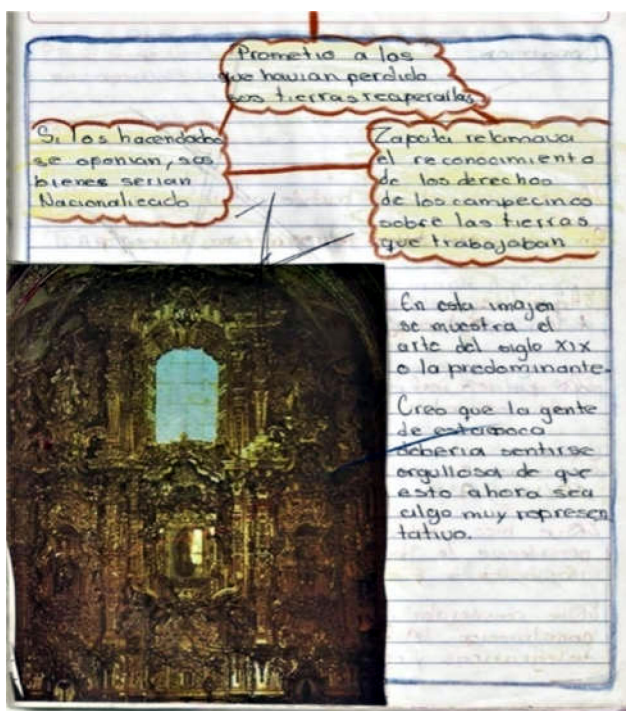 Prometio a los
que havian perdido
sos tierras recaperallas
Si los hacendados
se oponian, sos
bienes serian
Nacionalicado
Zapata relamava
el reconocimiento
de los derechos
de los campecinos
sobre las tierras
que trabajaban
En esta imajen
se muestra el
arte del siglo XIX
o la predominante.
Creo que la gente
de estaepoca
deberia sentirse
orgullosa de que
esto ahora sea
algo muy represen
tativo.